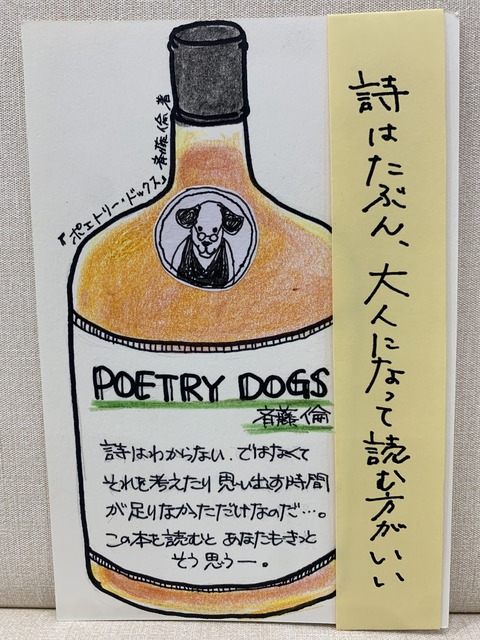 詩はたぶん、大人になって読む方がいい
『ポエトリー・ドッグス』
斉藤倫 著
POETRY DOGS
斉藤倫
詩はわからない、ではなくて
それを考えたり思い出す時間
が足りなかっただけなのだ…。
この本を読むと あなたもきっと
そう思うー。